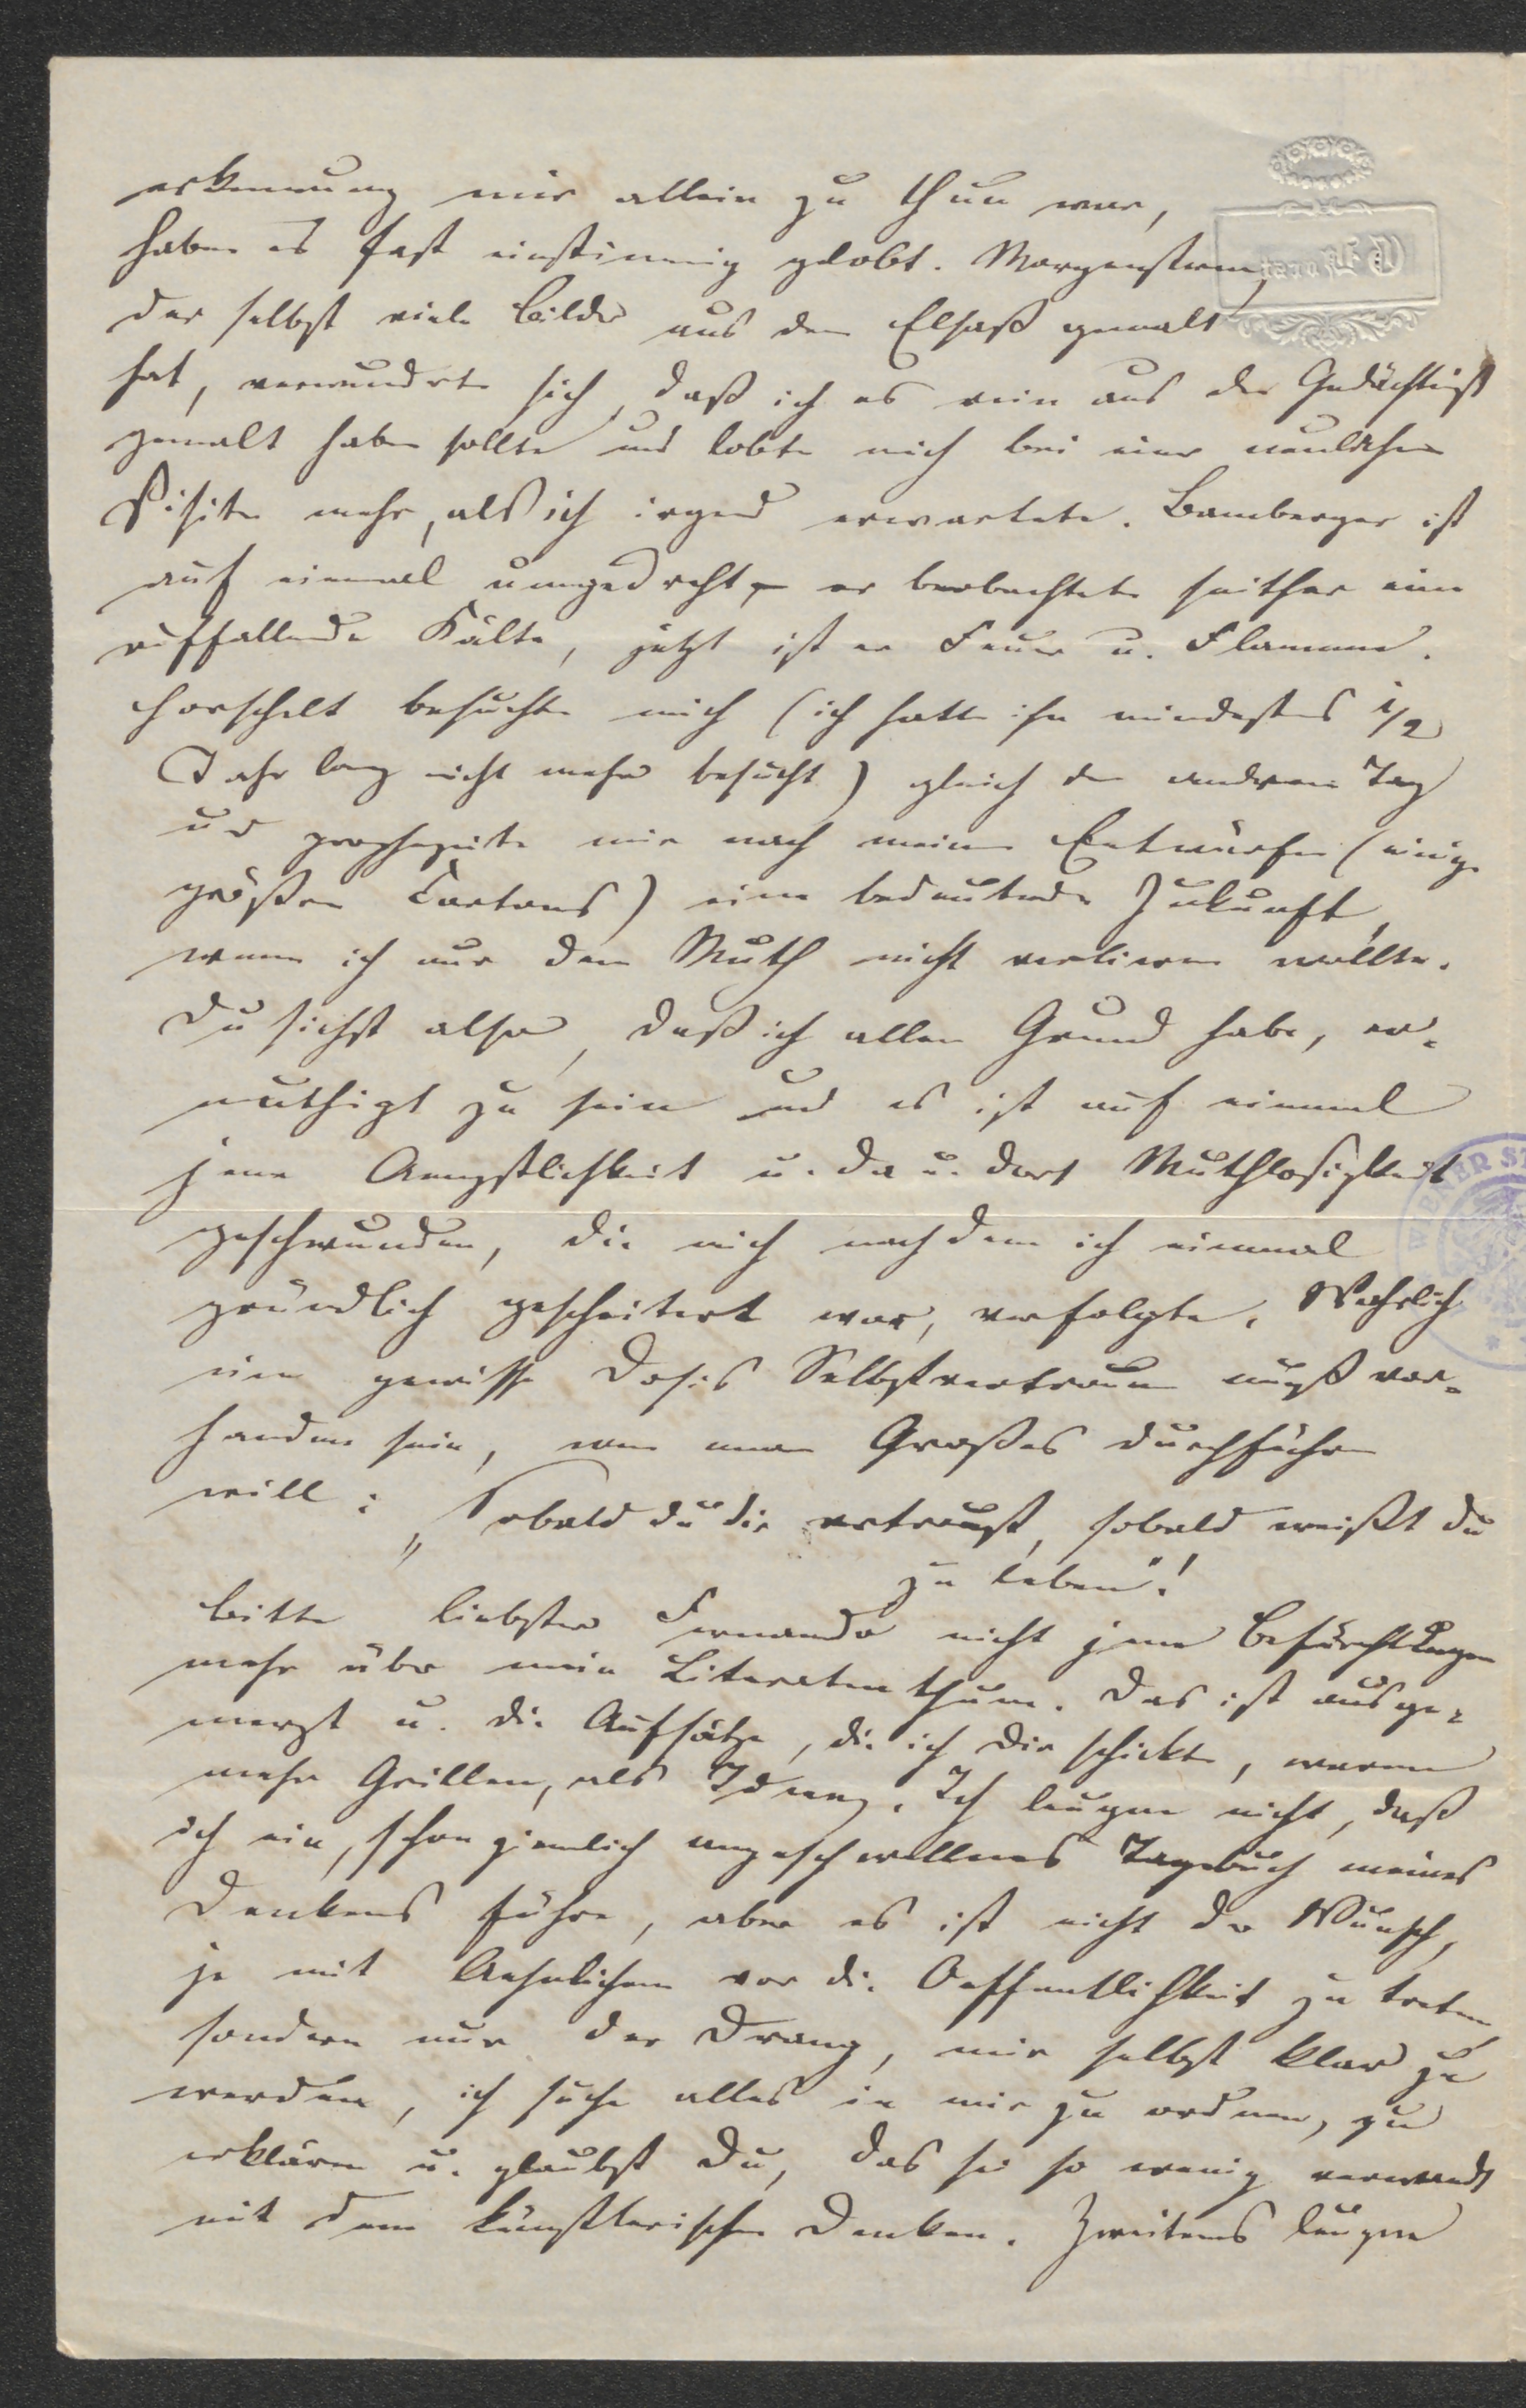 erkennung mir allein zu thun war,
haben es fast einstimmig gelobt. Morgenstern,
der selbst viele Bilder aus dem Elsaß gemalt
hat, verwunderte sich, daß ich es rein aus der Gedächtniß
gemalt haben sollte und lobte mich bei einer neulichen
Visite mehr, als ich irgend erwartete. Bamberger ist
auf einmal umgedreht, – er beobachtete seither eine
auffallende Kälte, jetzt ist er Feuer u. Flamme.
Horschelt besuchte mich (ich hatte ihn mindestens 1/2
Jahr lang nicht mehr besucht) gleich den anderen Tag
und prophezeite mir nach meinen Entwürfen (einige
größere Cartons) eine bedeutende Zukunft,
wenn ich nur den Muth nicht verlieren wollte.
Du siehst also, daß ich allen Grund habe, er-
muthigt zu sein und es ist auf einmal
jene Aengstlichkeit u. da u. dort Muthlosigkeit
geschwunden, die mich nachdem ich einmal
gründlich gescheitert war, verfolgte. Wahrlich
eine gewisse Dosis Selbstvertrauen muß vor-
handen sein, wenn man Großes durchführen
will: „Sobald du dir vertraust, sobald weißt du
zu leben"!
Bitte liebster Fernando nicht jene Befürchtungen
mehr über mein Literatenthum. Das ist ausge-
merzt u. die Aufsätze, die ich Dir schickte, waren
mehr Grillen, als Ideeng. Ich leugne nicht, daß
ich ein, schon ziemlich angeschwollenes Tagebuch meines
Denkens führe, aber es ist nicht der Wunsch,
je mit Aehnlichem vor die Oeffentlichkeit zu treten,
sondern nur der Drang, mir selbst klar zu
werden, ich suche alles in mir zu ordnen, zu
erklären u. glaubst Du, das sei so wenig verwandt
mit dem künstlerischen Denken. Zweitens leugne
WIENER ST